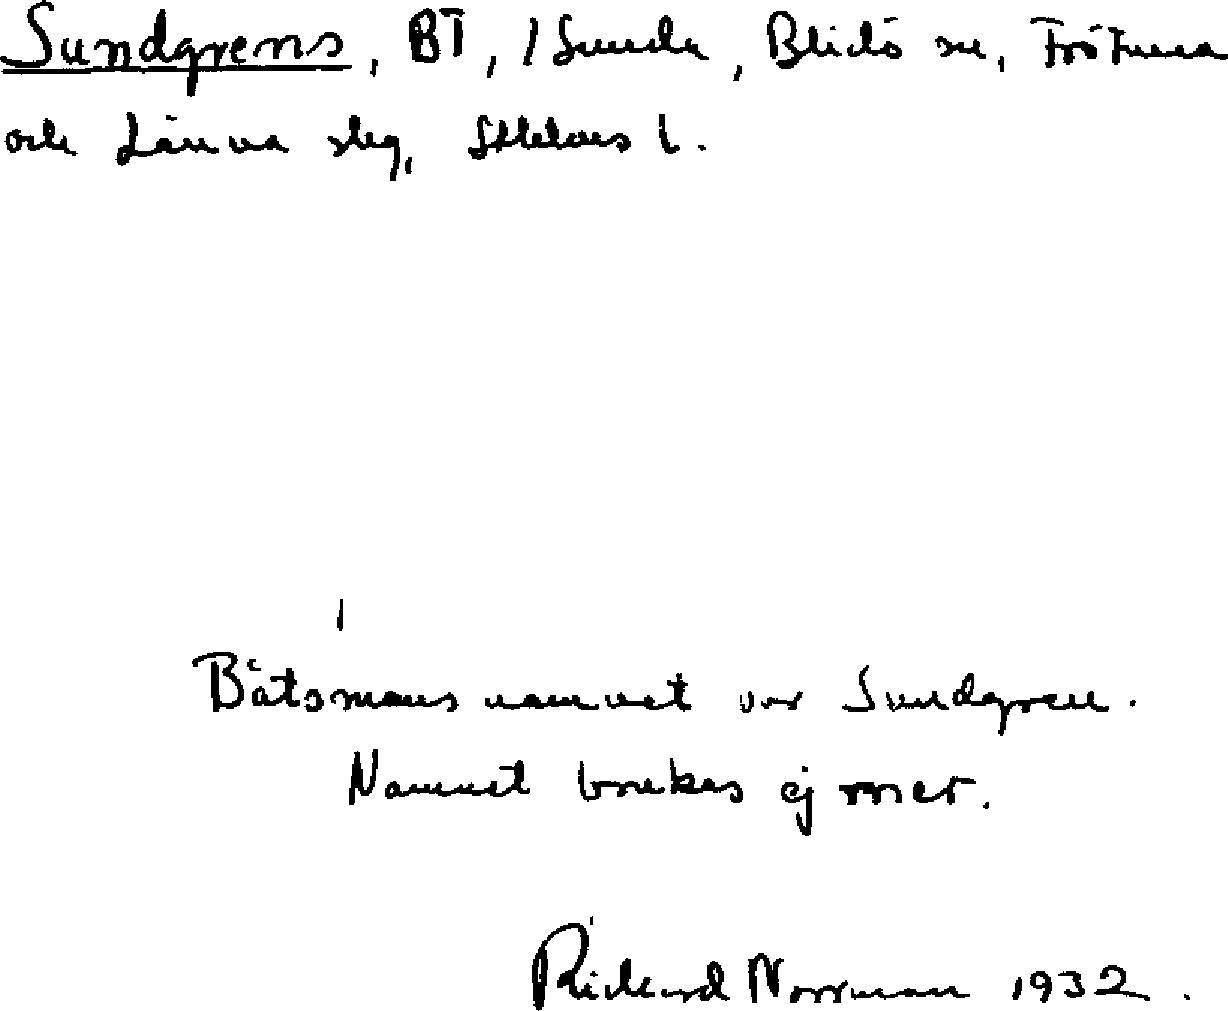 Sundgrens, BT, /Sunda, Blidö sn, Frötuna
och Länna slg, Sthlms l.
Båtsmansnamnet var Sundgren.
Namnet brukas ej mer.
Rickard Norrman 1932.